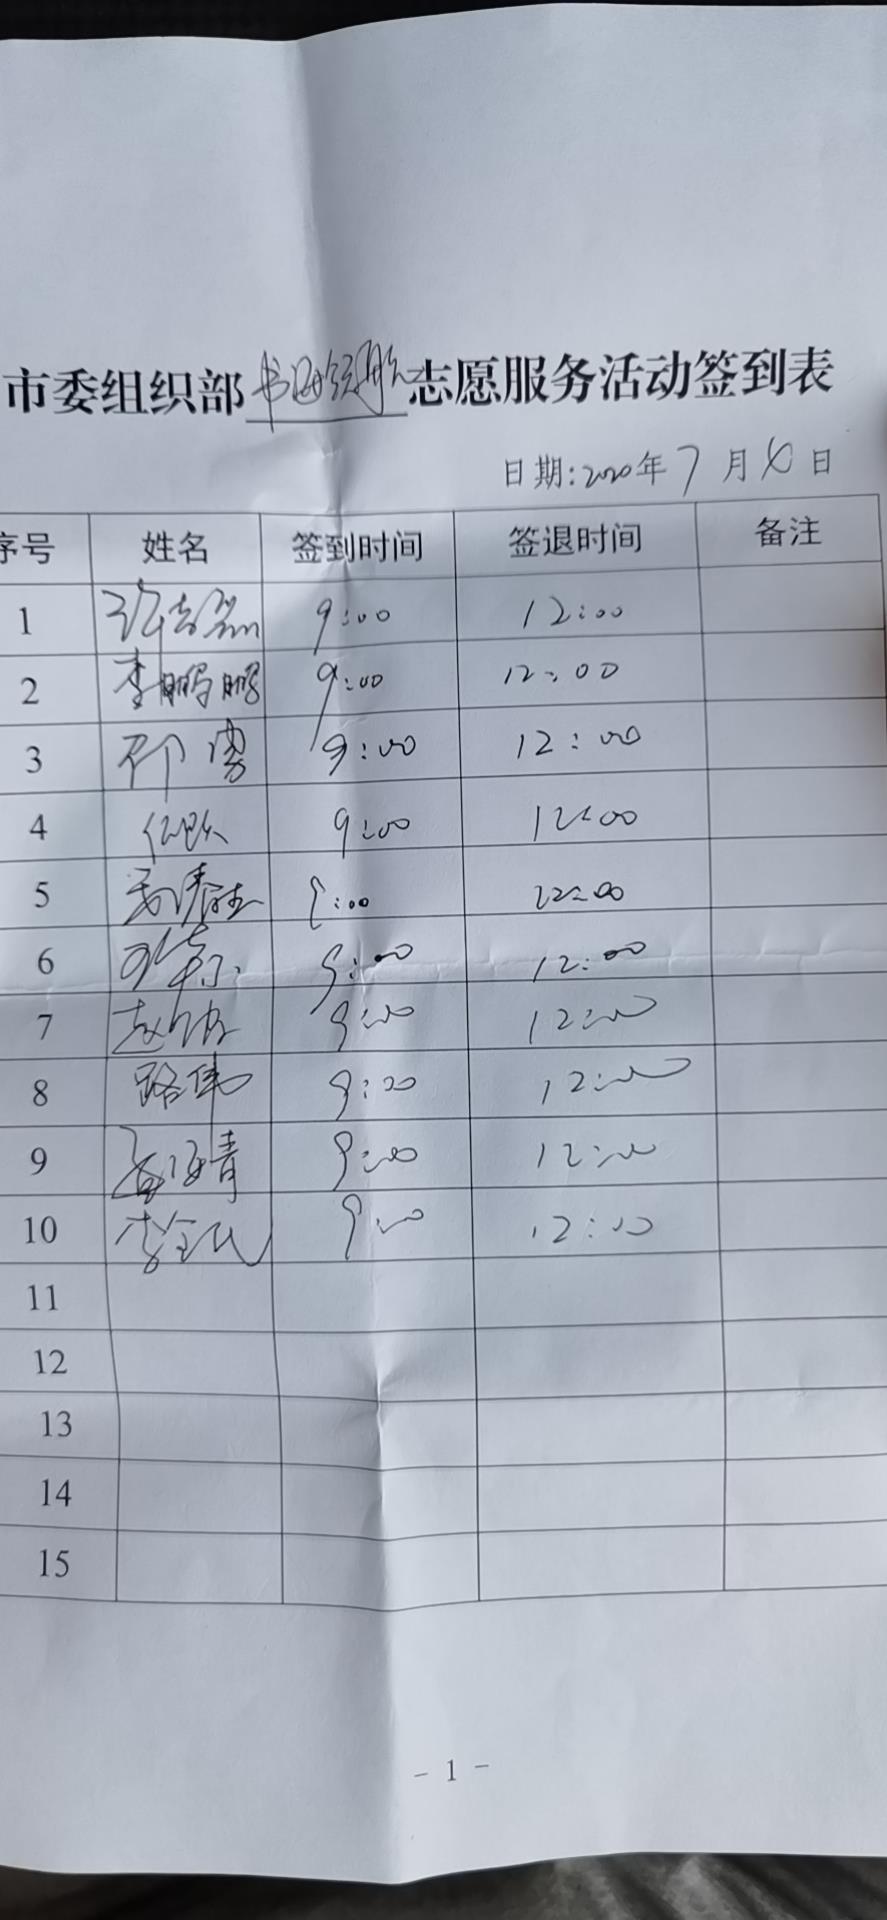 市委组织部书海领航志愿服务活动签到表
日期:2020年7月4日
序号 姓名 签到时间 签退时间 备注
1 9:00 12:00
2 李鹏鹏 9:00 12:00
3 邵勇 9:00 12:00
4 9:00 12:00
5 9:00 12:00
6 9:00 12:00
7 9:00 12:00
8 路伟 9:00 12:00
9 9:00 12:00
10 李全民 9:00 12:00
11
12
13
14
15
- 1 -